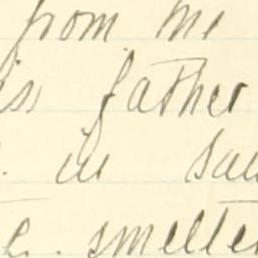 from me
father
in
smelte